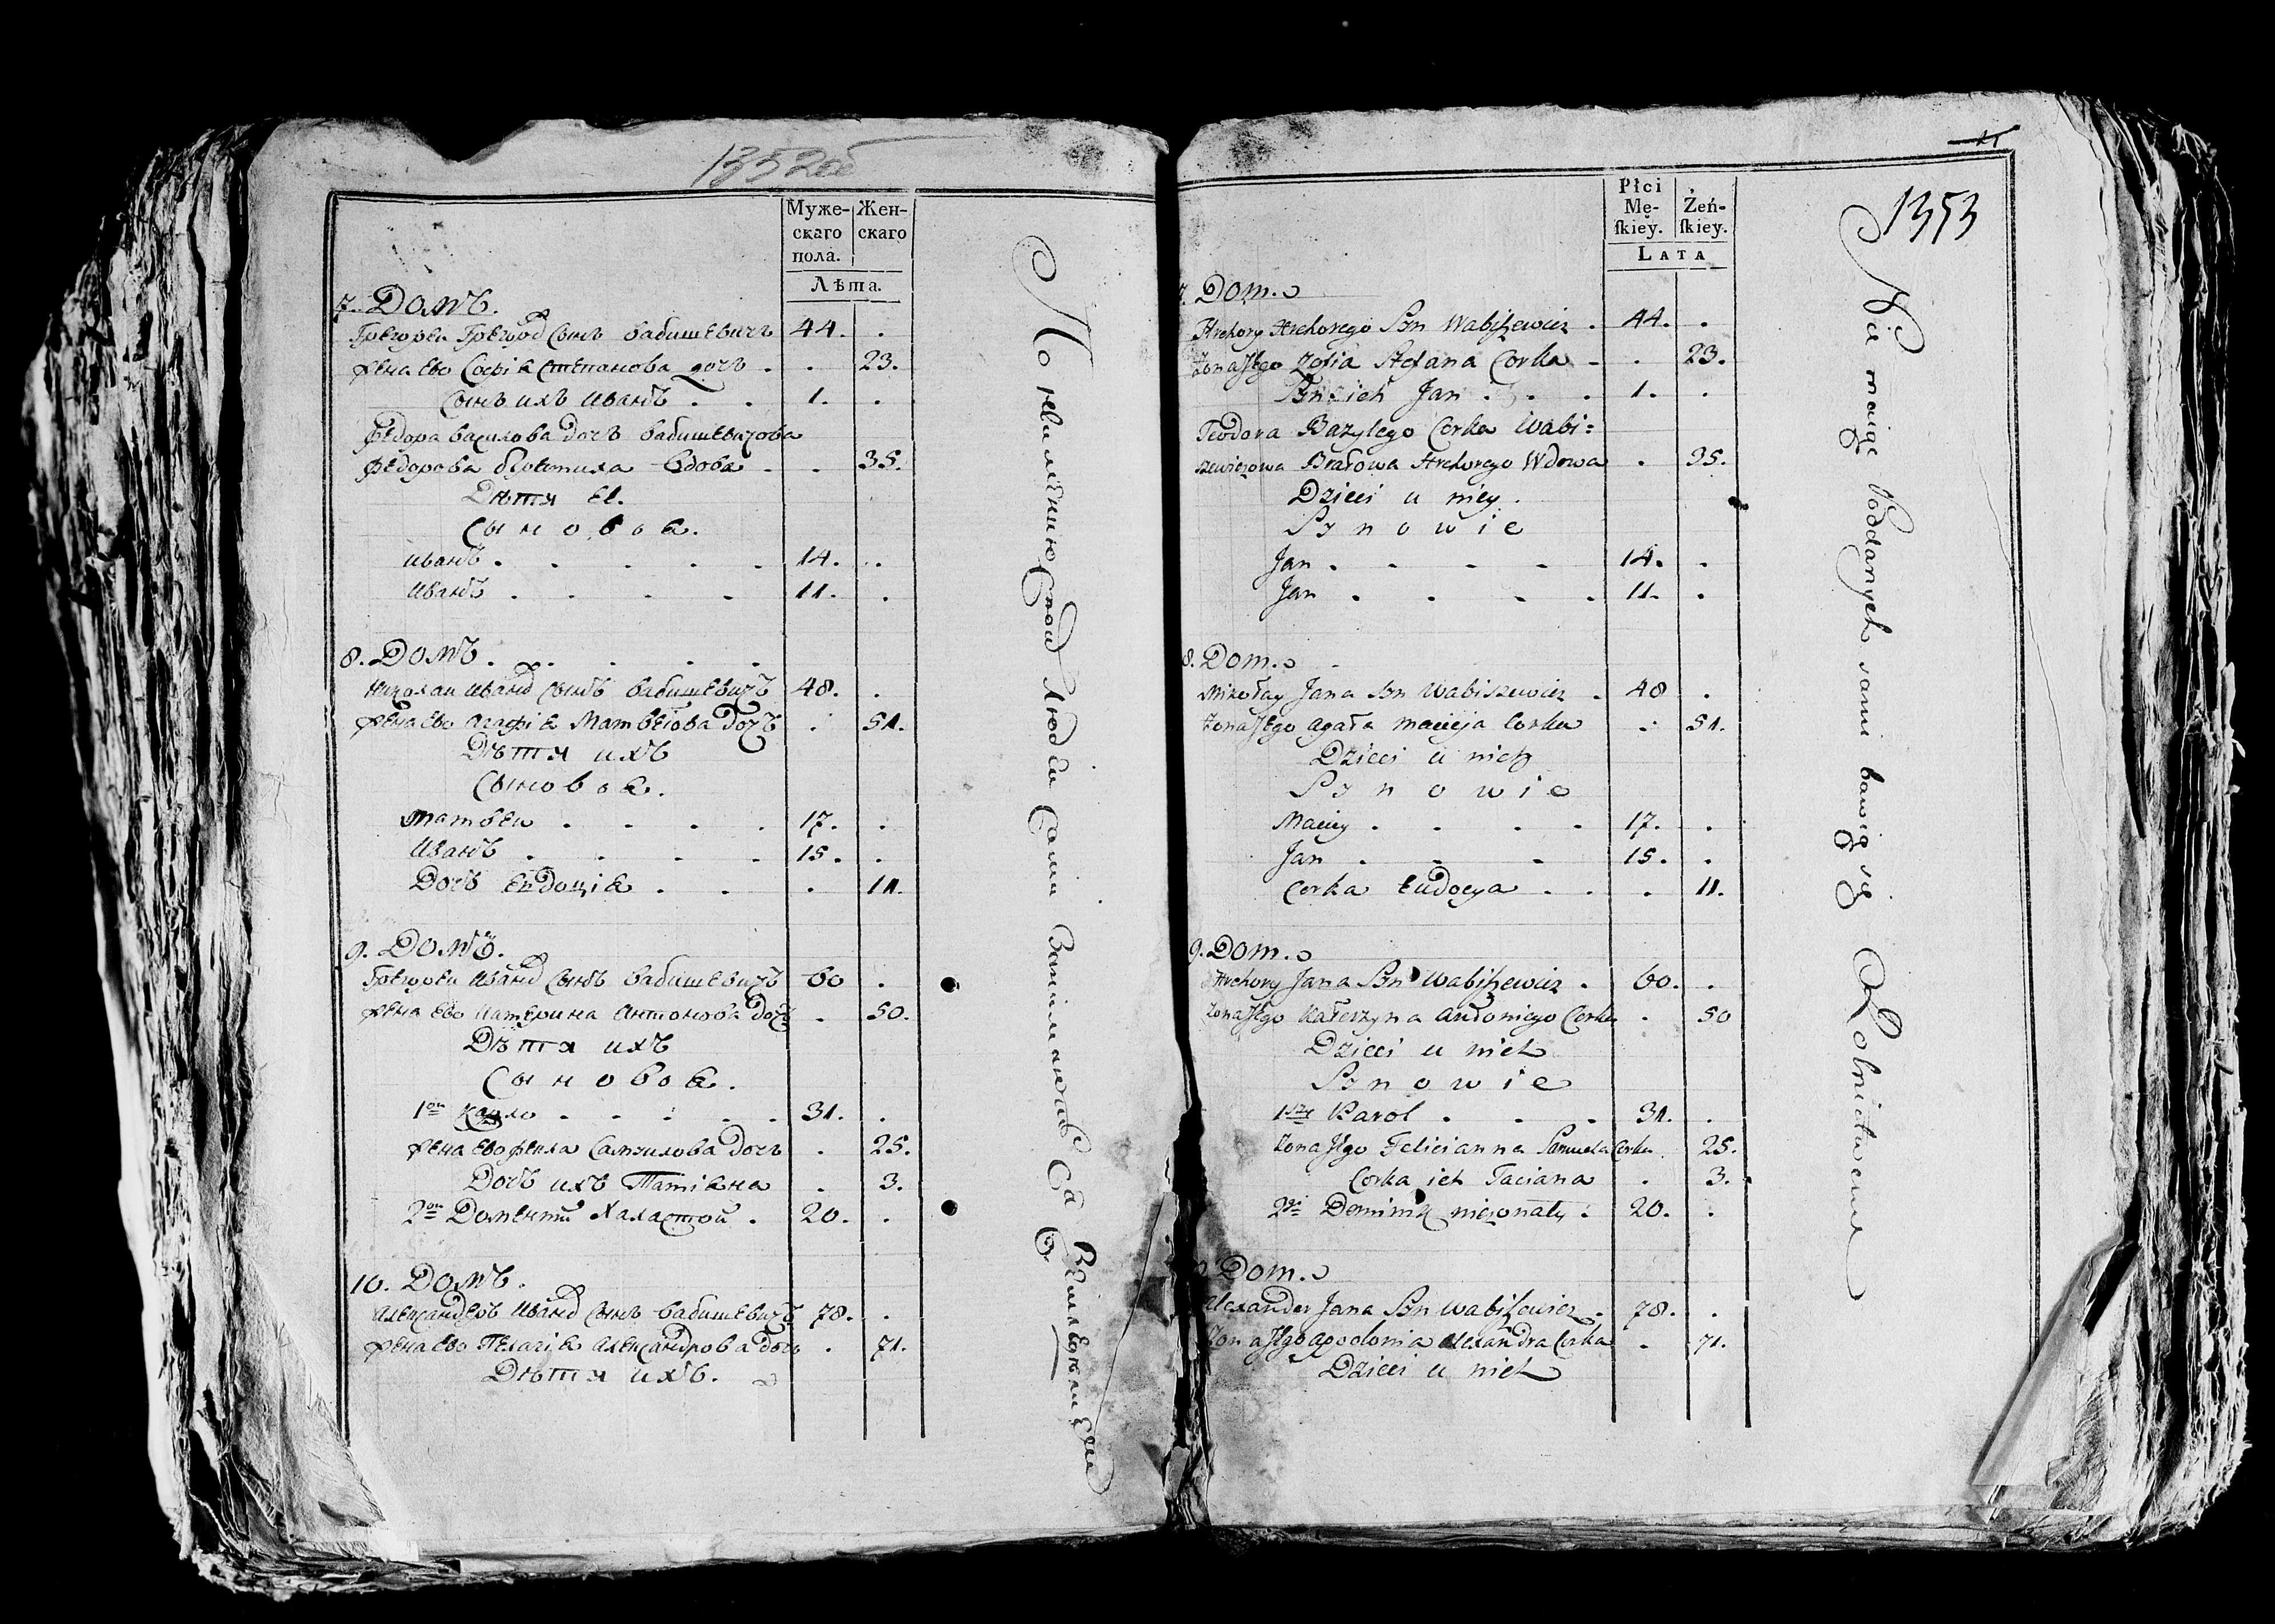 1352об
Муже- Жен-
скаго скаго
пола.
Лѣта.
7. Домъ.
Грегореи Грегорѣ Сынъ Вабишевичъ 44. .
Жена Ево Софіѣ Степанова дочъ . . 23.
Сынъ ихъ Иванъ . . 1. .
Федора Василова Дочъ Вабишевичова
Федорова Вдова . . 35.
Дѣтя Ei.
Сыновѣ.
Иванъ . . . . . 14. .
Иванъ . . . . 11. .
8. Домъ . . . . .
Николаи Иванѣ Сынъ Вабишевичъ 48. .
Жена Ево Агафіѣ Матвеiова Дочъ . 51.
Дѣтя ихъ
Сыновѣ.
Матвеи . . . . 17. .
Иванъ . . . . 15. .
Дочъ Евдоціѣ . . . 11.
9. Домъ.
Грегореи Иванѣ Сынъ Вабишевичъ 60 .
Жена Ево Катерина Антонова Дочъ . 50.
Дѣтя ихъ
Сыновѣ.
1ои Карло . . . . . 31. .
Жена Ево Фекла Самуилова Дочъ . 25.
Дочъ ихъ Татіѣна . 3.
2ои Доменти Халастои . 20. .
10. Домъ.
Александеръ Иванѣ Сынъ Вабишевичъ 78. .
Жена Ево Пелагіѣ Александрова дочъ . 71.
Дѣтя ихъ.
По неимѣнию Люде Сами Занимаютъ Са
1353
Płci
Mę- Żeń-
ſkiey. ſkiey.
LATA
7. Dom.
Hrehory Hrehorego Syn Wabiszewicz . 44. .
Zona Jego Zofia Stefana Corka - . 23.
Syn ich Jan . . . 1. .
Teodora Bazylego Corka Wabi=
szewiczowa Bratowa Hrehorego Wdowa . 35.
Dzieci u niey.
Synowie
Jan . - - - - 14. .
Jan . . . . 11. .
8. Dom.
Mikołay Jana Syn Wabiszewicz . 48 .
Zona Jego Agata Macieja Corka . 51.
Dzieci u nich
Synowie
Maciey . . . . 17. .
Jan . . - 15. .
Corka Eudocya . . . 11.
9. Dom.
Hrehory Jana Syn Wabiszewicz . 60. .
Zona Jego Katerzyna Antoniego Corka . 50
Dzieci u nich
Synowie
1szy Karol . . . . 31. .
Zona Jego Felicianna Samuela Corka . 25.
Corka ich Taciana . 3.
2gi Dominik niezonaty . 20. .
Dom.
Alexander Jana Syn Wabiszewicz . 78. .
Zona Jego Apolonia Alexandra Corka . 71.
Dzieci u nich
Nie maiąc Poddanych sami bawią się Robnictwem